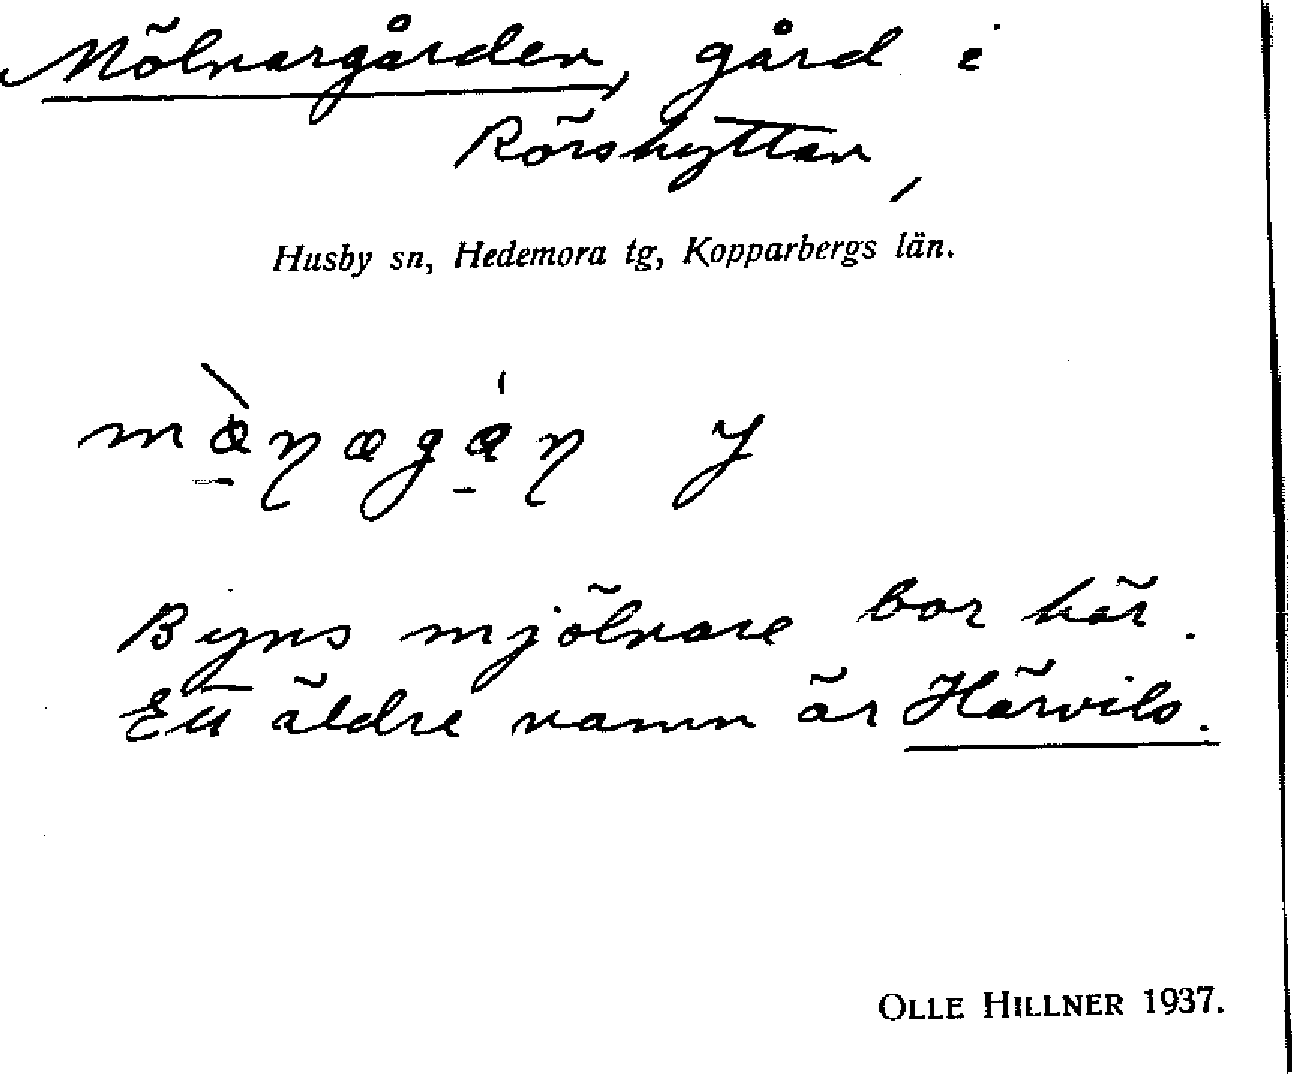 Mölnargården, gård i
Rörshyttan,
Husby sn, Hedemora tg, Kopparbergs län.
Byns mjölnare bor här.
Ett äldre namn är Härvils.
OLLE HILLNER 1937.